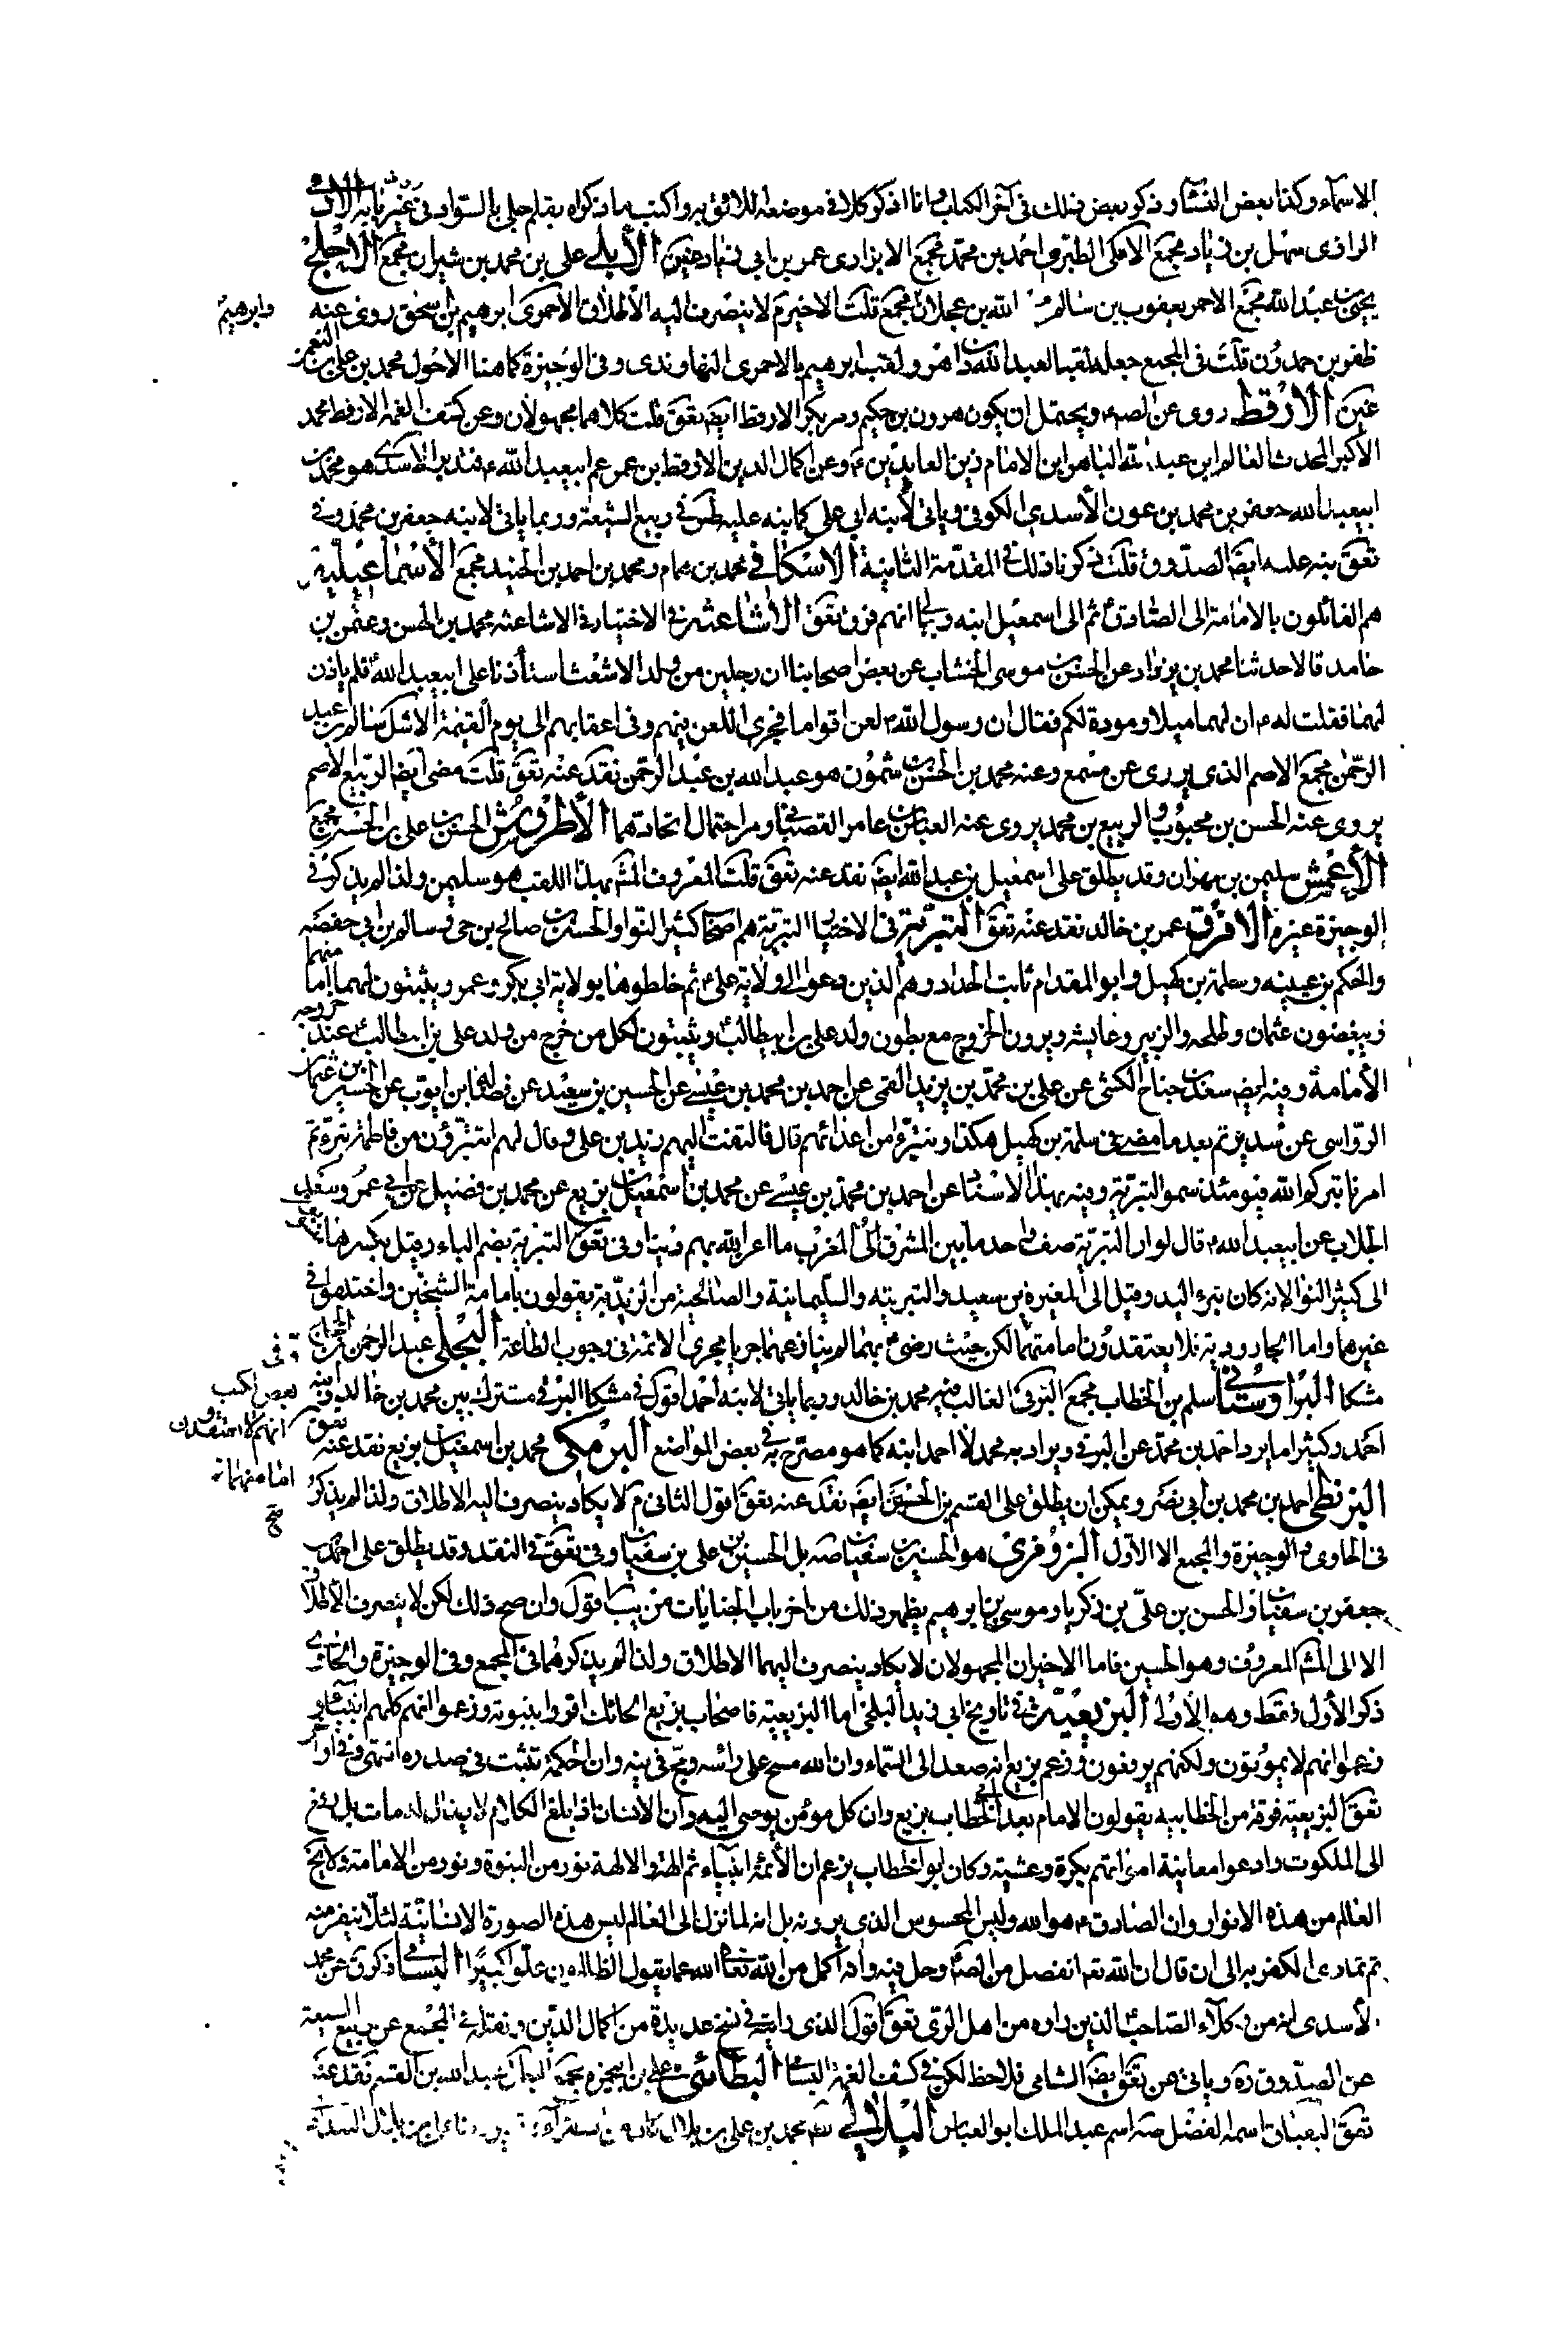 الاسماء وكذا بعض النساء وذكر بعض ذلك في آخر الكتاب وانا اذكر كلا في موضعه اللائق به واكتب ما ذكراه بقلم جلي بالسواد في غيره
الرازى سهل بن زياد مجمع الآملى الطبرى احمد بن محمد مجمع الابزارى عمر بن ابى زياد عنين الأبلي على بن محمد بن شيران مجمع الاجلح
يحيى بن عبد الله مجمع الاحمر يعقوب بن سالم الله بن عجلان مجمع قلت الاخير م لا ينصرف اليه الاطلاق الاحمرى ابرهيم بن اسحق روى عنه
ظفر بن حمدون قلت في المجمع جعله لقبا لعبد الله بن داهر ولقب ابرهيم بالاحمرى النهاوندى وفى الوجيزة كما هنا الاحول محمد بن على بن النعمن
عنين الارقط روى عن الصم ويحتمل ان يكون هرون بن حكيم ومر بكر الارقط ايضه تعق قلت كلاهما مجهولان وعن كشف الغمه الارقط محمد
الأكبر المحدث العالم ابن عبد الله الباهر ابن الامام زين العابدين ع وعن اكمال الدين الارقط بن عمر عم ابيعبد الله ع فتدبر الاسدى هو محمد بن
ابيعبد الله جعفر بن محمد بن عون الأسدى الكوفى وياتى لأبنه ابى على كما بنه عليه طس في ربيع الشيعة وربما ياتى لابنه جعفر بن محمد وفى
تعق بنه عليه ايضه الصدوق قلت ذكرنا ذلك في المقدمة الثانية الاسكافى محمد بن همام ومحمد بن احمد بن الجنيد مجمع الأسماعيلية
هم القائلون بالامامة الى الصادق ع ثم الى اسمعيل ابنه وربما انهم فرق تعق الأشاعثة في الاختيار في الاشاعثه محمد بن الحسن وعثمن بن
حامد قالا حدثنا محمد بن يزداد عن الحسن بن موسى الخشاب عن بعض اصحابنا ان رجلين من ولد الاشعث استأذنا على ابيعبد الله ع فلم ياذن
لهما فقلت له ع ان لهما ميلا ومودة لكم فقال ان رسول الله ص لعن اقواما فجرى اللعن فيهم وفى اعقابهم الى يوم القيمة الاشل سالم بن عبد
الرحمن مجمع الاصم الذى يروى عن مسمع وعنه محمد بن الحسن بن شمون هو عبد الله بن عبد الرحمن نقد عنه تعق قلت مضى ايضه الربيع الاصم
يروى عنه الحسن بن محبوب والربيع بن محمد يروى عنه العباس بن عامر القصبانى ومر احتمال اتحادهما الأطروش الحسن بن على بن الحسن مجمع
الأعمش سليمن بن مهران وقد يطلق على اسمعيل بن عبد الله ايضه نقد عنه تعق قلت المعروف المشه بهذا اللقب هو سليمن ولذا لم يذكر في
الوجيزة غيره الافرق عمر بن خالد نقد عنه تعق البترية في الاختيار البترية هم اصحاب كثير النوا والحسن بن صالح بن حى وسالم بن ابى حفصه
والحكم بن عيينه وسلمة بن كهيل وابو المقدام ثابت الحداد وهم الذين دعوا الى ولاية على ع ثم خلطوها بولاية ابى بكر وعمر ويثبتون لهما امامتهما
ويبغضون عثمان وطلحه والزبير وعايشه ويرون الخروج مع بطون ولد على بن ابيطالب ع ويثبتون لكل من خرج من ولد على بن ابيطالب ع عند خروجه
الأمامة وفيه ايضه سعد بن جناح الكشى عن على بن محمد بن يزيد القمى عن احمد بن محمد بن عيسى عن الحسين بن سعيد عن فضالة ابن ايوب عن الحسين بن عثمان
الرواسى عن سدير ثم بعد ما مضى في سلمة بن كهيل هكذا ونتبرء من اعدائهم قال فالتفت اليهم زيد بن على وقال لهم اتتبرؤن من فاطمة بترتم
امرنا بتركم الله فيومئذ سموا البترية وفيه بهذا الاسناد عن احمد بن محمد بن عيسى عن محمد بن اسمعيل بن بزيع عن محمد بن فضيل عن ابى عمرو سعد
الجلاب عن ابيعبد الله ع قال لو ان البترية صف واحد ما بين المشرق الى المغرب ما اعز الله بهم دينا وفى تعق البترية بضم الباء وقيل بكسرها
الى كثير النوا لانه كان بتره اليد وقيل الى المغيرة بن سعيد والبتريه والسليمانية والصالحية من الزيدية يقولون بامامة الشيخين واختلفوا في
غيرهما واما الجارودية فلا يعتقدون امامتهما لكن حيث رضى ع بهما لم ينازعهما جريا مجرى الائمة في وجوب الطاعة البجلي عبد الرحمن بن الحجاج
مشكا البراوستانى سلم بن الخطاب مجمع البرقى الغالب فيه محمد بن خالد وربما ياتى لابنه احمد اقول في مشكا البرقى مشترك بين محمد بن خالد وابنه
احمد وكثيرا ما يرد احمد بن محمد عن البرقى ويراد به محمد لا احمد ابنه كما هو مصرح به في بعض المواضع البرمكى محمد بن اسمعيل بن بزيع نقد عنه تعق
البزنطى احمد بن محمد بن ابى نصر ويمكن ان يطلق على القسم بن الحسين ايضه نقد عنه تعق اقول الثانى م لا يكاد ينصرف اليه الاطلاق ولذا لم يذكر
في الحاوى والوجيزة والمجمع الا الاول البزوفرى هو الحسين بن سفيان صه بل الحسين بن على بن سفيان وفى تعق في النقد وقد يطلق على احمد بن
جعفر بن سفيان والحسن بن على بن زكريا وموسى بن ابرهيم يظهر ذلك من اخر باب الجنايات من يب اقول وان صح ذلك لكن لا ينصرف الاطلاق
الا الى المشه المعروف وهو الحسين فاما الاخيران المجهولان لا يكاد ينصرف اليهما الاطلاق ولذا لم يذكرهما في المجمع وفى الوجيزة والحاوى
ذكر الأول فقط وهو الأولى البزيعية في تاريخ ابى زيد البلخى اما البزيعيه فاصحاب بزيع الحائك اقروا بنبوته وزعموا انهم كلهم انبياء
زعموا انهم لا يموتون ولكنهم يرفعون وزعم بزيع انه صعد الى السماء وان الله مسح على رأسه ومج في فيه وان الحكمة تثبت في صدره انتهى وفى
تعق البزيعية فرقة من الخطابيه يقولون الامام بعد ابى الخطاب بزيع وان كل مؤمن يوحى اليه وان الانسان اذا بلغ الكلام لا يقال له مات بل رفع
الى الملكوت وادعوا معاينة امواتهم بكرة وعشية وكان ابو الخطاب يزعم ان الأئمة انبياء ثم الهة والالهة نور من النبوة ونور من الامامة ولا يخ
العالم من هذه الانوار وان الصادق ع هو الله وليس المحسوس الذى يرونه بل انه لما نزل الى العالم لبس هذه الصورة الانسانية لئلا ينفر منه
ثم تمادى الكفر به الى ان قال ان الله تعه انفصل من الصم وحل فيه وانه اكمل من الله تعالى الله عما يقول الظالمون علوا كبيرا البسامى ذكر ق عن محمد
الأسدى انه من وكلاء الصاحب ع الذين راوه من اهل الرى تعق اقول الذى رايته في نسخ عديدة من اكمال الدين ونقله في المجمع عن ربيع الشيعة
عن الصدوق ره وياتى عن تعق ايضه الشامى فلاحظ لكن في كشف الغمة البسامى البطائنى على بن ابيحمزه مجمع البطل عبد الله بن القسم نقد عنه
تعق البقباق اسمه الفضل صه اسم عبد الملك ابو العباس البلالى محمد بن على بن بلال
وابرهيم
وفى
بعض الكتب
انهم لا يعتقدون
امامتهما
صح